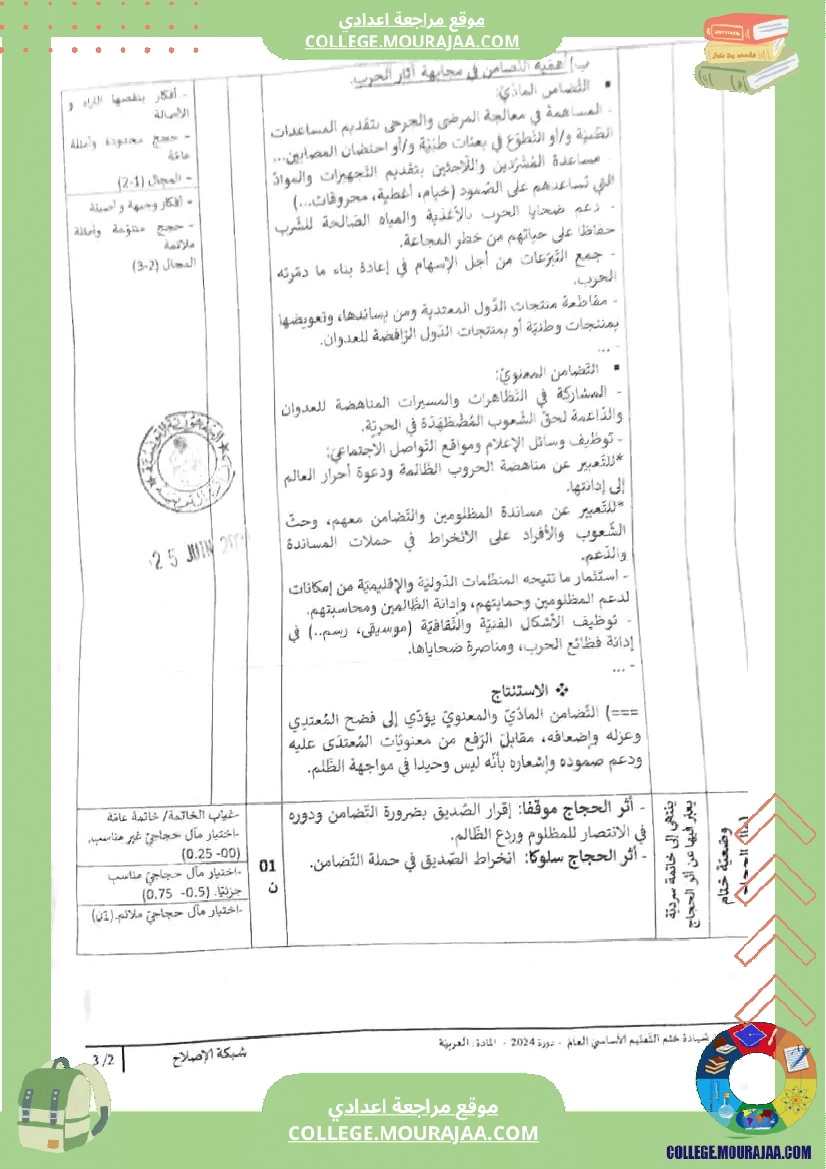 موقع مراجعة اعدادي
COLLEGE.MOURAJAA.COM
التّضامن في مجابهة آثار الحرب.
▪ التّضامن المادّيّ:
- المساهمة في معالجة المرضى والجرحى بتقديم المساعدات
الطّبيّة و/أو التّطوّع في بعثات طبّيّة و/أو احتضان المصابين...
- مساعدة المُشرّدين واللّاجئين بتقديم التّجهيزات والموادّ
التي تساعدهم على الصّمود (خيام، أغطية، محروقات...)
- دعم ضحايا الحرب بالأغذية والمياه الصّالحة للشّرب
حفاظا على حياتهم من خطر المجاعة.
- جمع التّبرّعات من أجل الإسهام في إعادة بناء ما دمّرته
الحرب.
- مقاطعة منتجات الدّول المعتدية ومن يساندها، وتعويضها
بمنتجات وطنيّة أو بمنتجات الدّول الرّافضة للعدوان.
- ...
▪ التّضامن المعنويّ:
- المشاركة في التّظاهرات والمسيرات المناهضة للعدوان
والدّاعمة لحقّ الشّعوب المُضْطَهَدَة في الحريّة.
- توظيف وسائل الإعلام ومواقع التّواصل الاجتماعيّ:
*للتّعبير عن مناهضة الحروب الظّالمة ودعوة أحرار العالم
إلى إدانتها.
*للتّعبير عن مساندة المظلومين والتّضامن معهم، وحثّ
الشّعوب والأفراد على الانخراط في حملات المساندة
والدّعم.
- استثمار ما تتيحه المنظّمات الدّوليّة والإقليميّة من إمكانات
لدعم المظلومين وحمايتهم، وإدانة الظّالمين ومحاسبتهم.
- توظيف الأشكال الفنيّة والثّقافيّة (موسيقى، رسم..) في
إدانة فظائع الحرب، ومناصرة ضحاياها.
- ...
❖ الاستنتاج
===) التّضامن المادّيّ والمعنويّ يؤدّي إلى فضح المُعتدِي
وعزله وإضعافه، مقابلَ الرّفع من معنويّات المُعتدَى عليه
ودعم صموده وإشعاره بأنّه ليس وحيدا في مواجهة الظّلم.
- أفكار ينقصها الثراء و
الأصالة
- حجج محدودة وأمثلة
عامّة
- المجال (1-2)
- أفكار وجيهة و أصيلة
- حجج متنوّعة وأمثلة
ملائمة
المجال (2-3)
25 JUIN
وضعية ختام
ينتهي إلى خاتمة سرديّة
يعبّر فيها عن أثر الحجاج
- أثر الحجاج موقفا: إقرار الصّديق بضرورة التّضامن ودوره
في الانتصار للمظلوم وردع الظّالم.
- أثر الحجاج سلوكا: انخراط الصّديق في حملة التّضامن.
01
ن
-غياب الخاتمة/ خاتمة عامّة
-اختيار مآل حجاجيّ غير مناسب.
(00- 0.25)
-اختيار مآل حجاجيّ مناسب
جزئيّا. (0.5- 0,75)
-اختيار مآل حجاجيّ ملائم.(1ن)
شهادة ختم التّعليم الأساسي العامّ - دورة 2024 - المادة: العربيّة
شبكة الإصلاح
3 /2
موقع مراجعة اعدادي
COLLEGE.MOURAJAA.COM
COLLEGE.MOURAJAA.COM